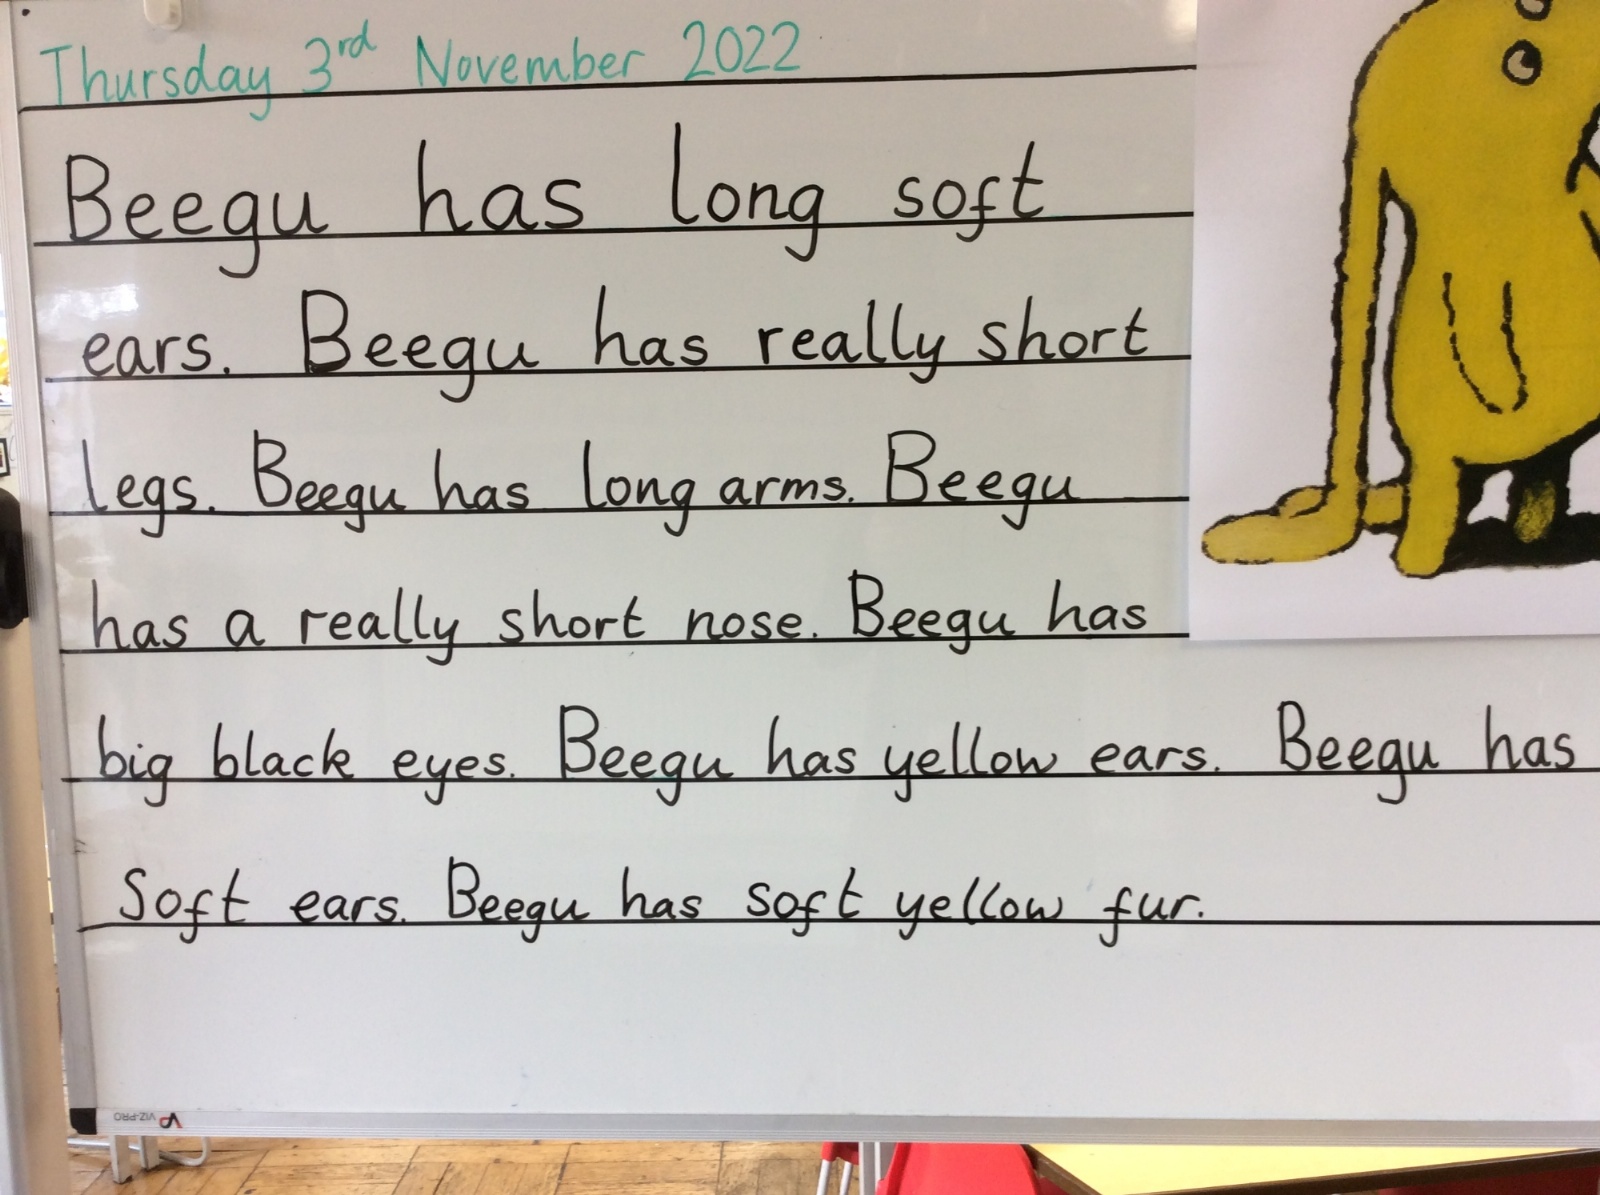 Thursday 3rd November 2022
Beegu has long soft
ears. Beegu has really short
legs. Beegu has long arms. Beegu
has a really short nose. Beegu has
big black eyes. Beegu has yellow ears. Beegu has
Soft ears. Beegu has soft yellow fur.
VIZ-PRO